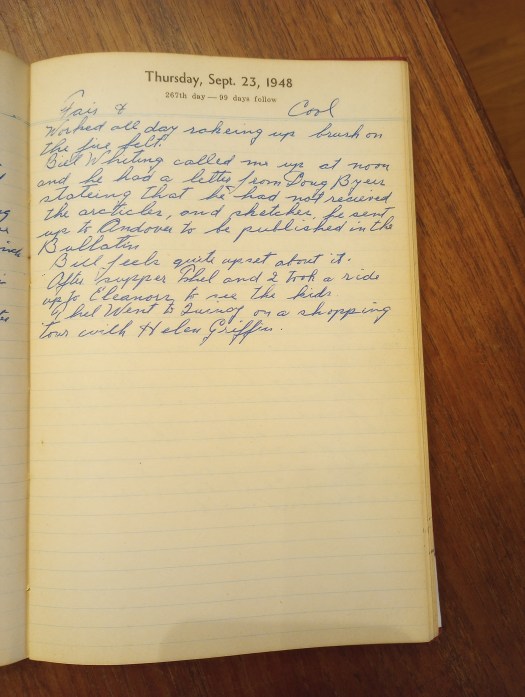 Thursday, Sept. 23, 1948
267th day — 99 days follow
Fair & Cool
Worked all day rakeing up brush on
the fire felt.
Bill Whiting called me up at noon
and he had a letter from Doug Byers
stateing that he had not recieved
the articles, and sketches, he sent
up to Andover to be published in the
Bullatin
Bill feels quite upset about it.
After supper Thel and I took a ride
up to Eleanors to see the kids
Thel Went to Quincy on a shopping
tour with Helen Griffin.